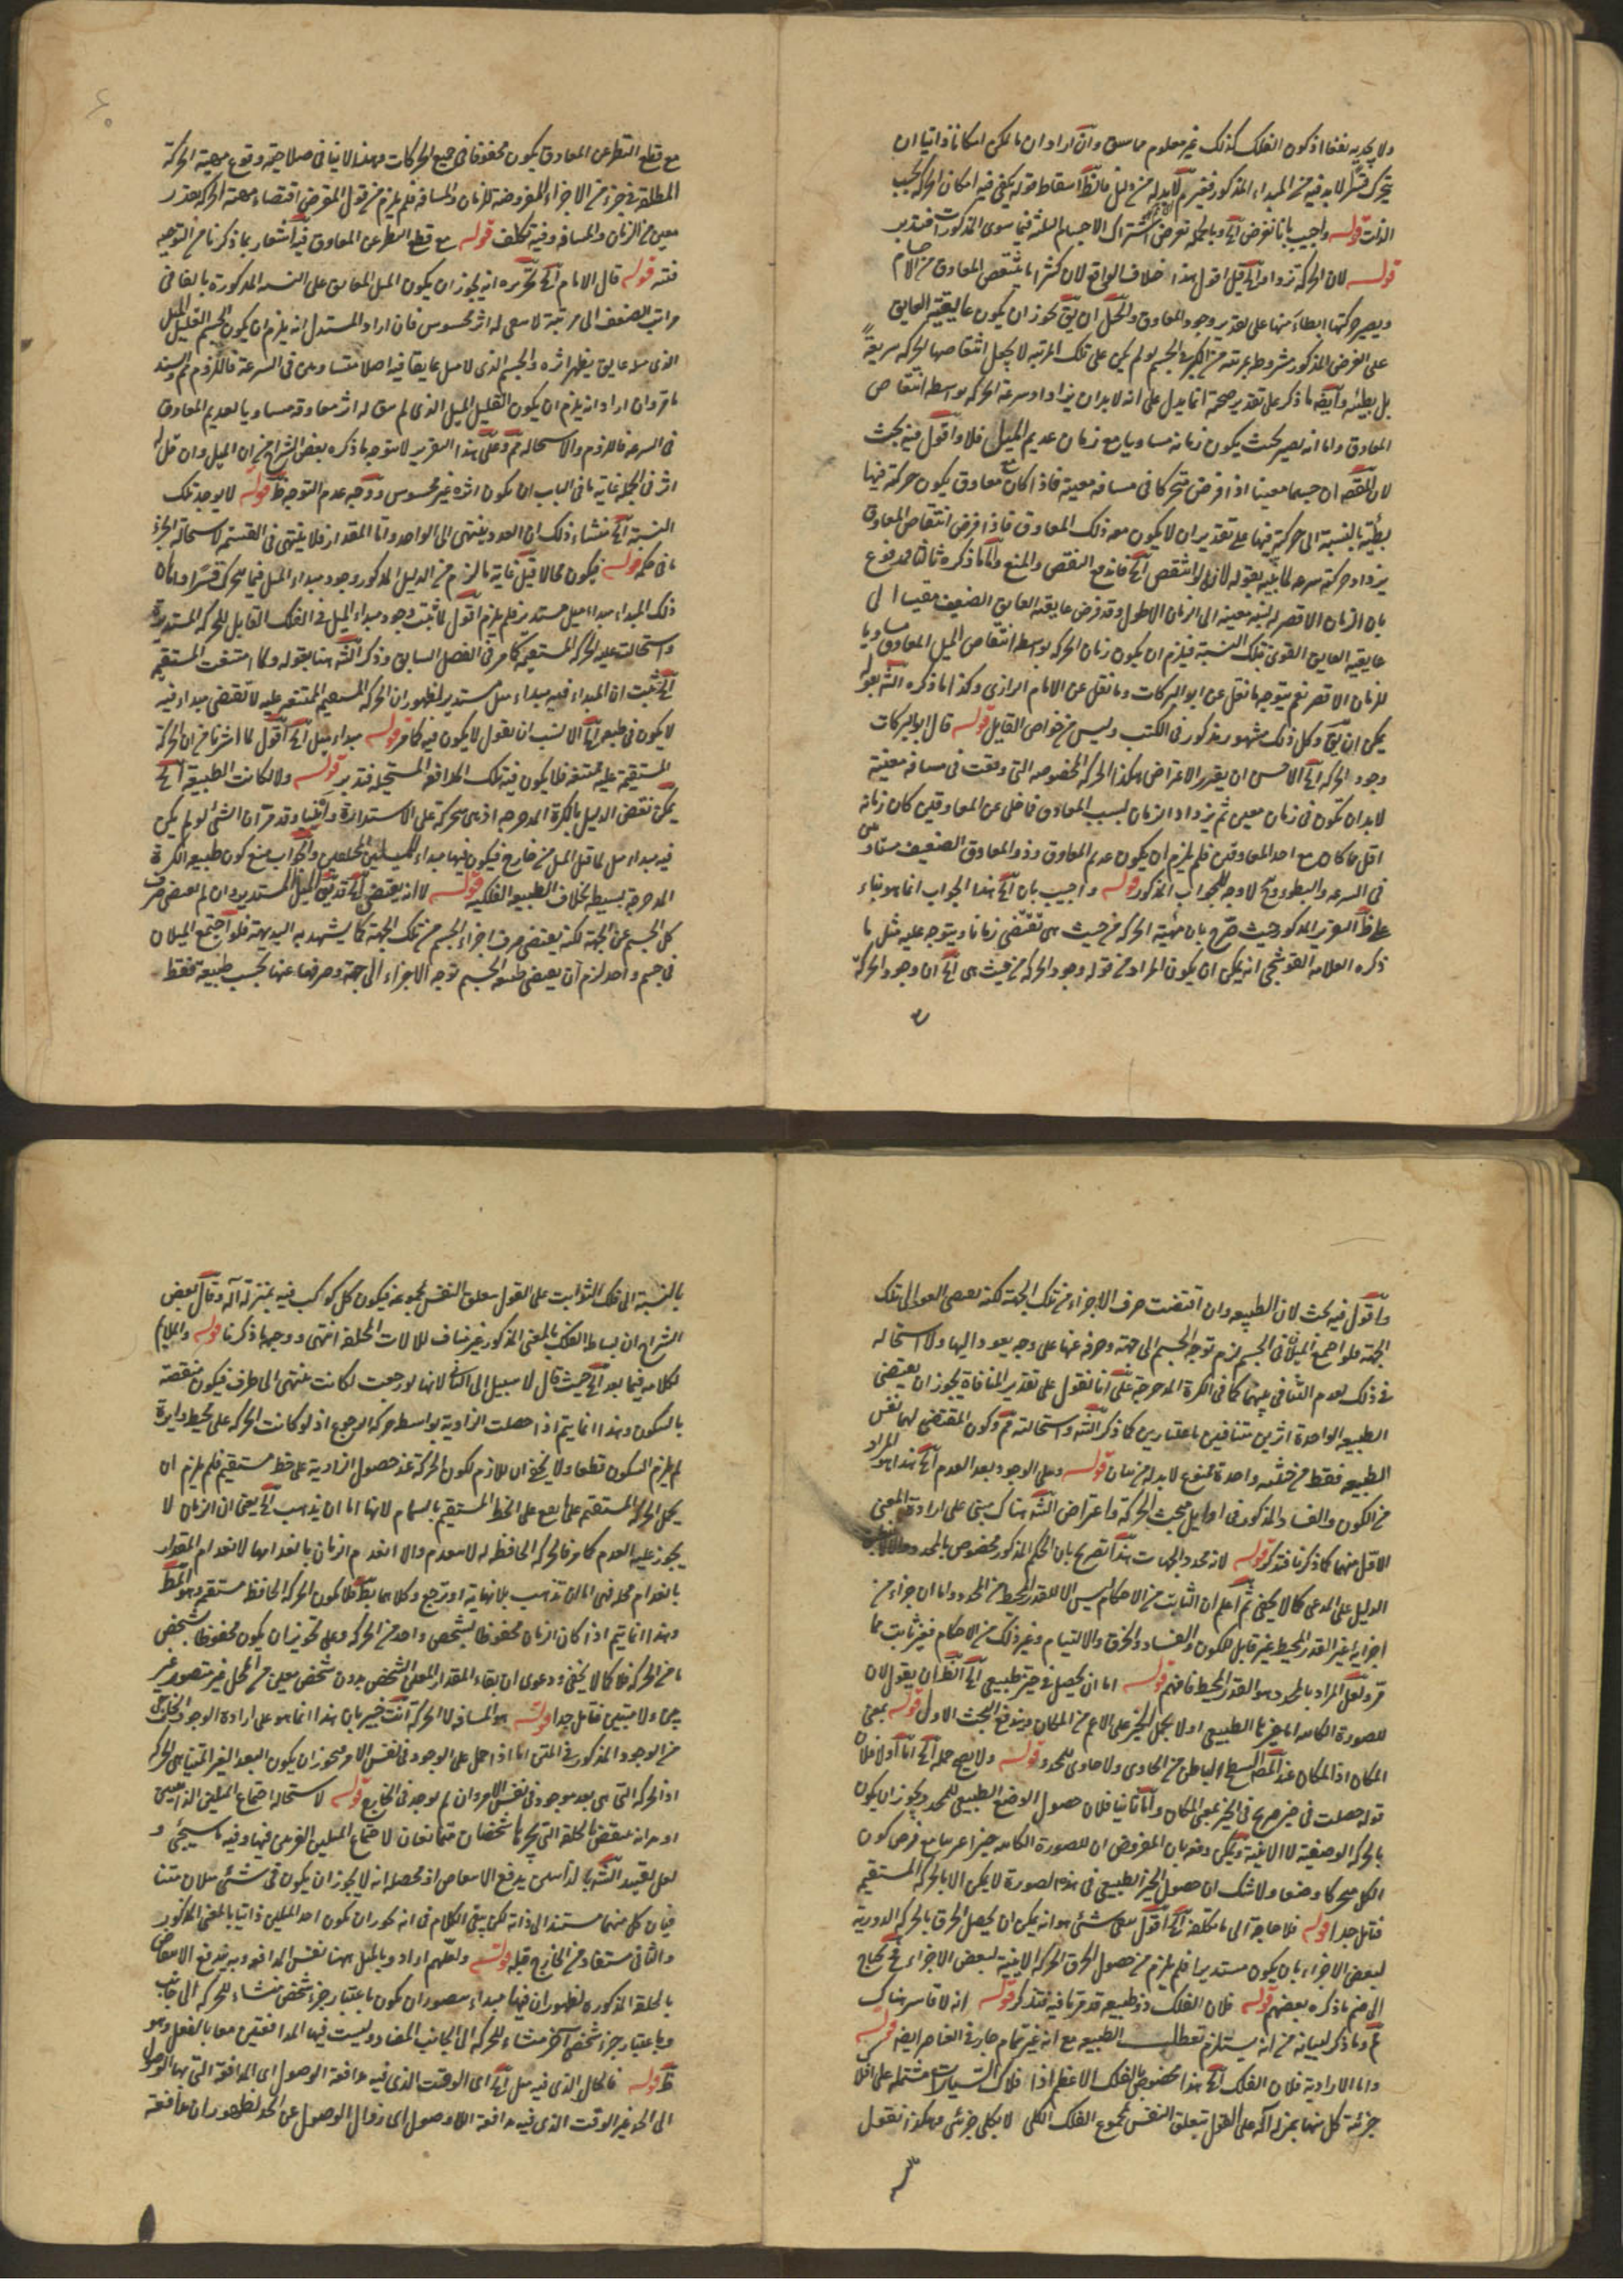 ولا يجديه نفعا اذ كون الفلك كذلك غير معلوم مما سبق وان اراد ان ما يمكن امكانا ذاتيا ان
يتحرك قسرا لا بد فيه من المبداء المذكور فغير لا بد له من دليل فالظ اسقاط قوله يكفي فيه امكان الحركة بحسب
الذات قوله واجيب بانا نفرض الخ وبالجملة نفرض اشتراك الاجسام الثلثة فيما سوى المذكورات فتدبر
قوله لان الحركة تزداد الخ قيل اقول هذا خلاف الواقع لان كثيرا ما ينتقص المعاوق من الاجسام
ويصير حركتها ابطاء منها على تقدير وجود المعاوق والحل ان يق يجوز ان يكون عايقية العايق
على الفرض المذكور مشروطة بمرتبة من الكبر في الجسم لو لم يكن على تلك المرتبة لا يجعل انتقاصها الحركة سريعة
بل بطيئة وايضه ما ذكر على تقدير صحته انما يدل على انه لا بد ان يزداد سرعة الحركة بواسطة انتقاص
المعاوق واما انه يصير بحيث يكون زمانه مساويا مع زمان عديم الميل فلا واقول فيه بحث
لان المقصه ان جسما معينا اذا فرض متحركا في مسافة معينة فاذا كان مع معاوق يكون حركته فيها
بطيئة بالنسبة الى حركته فيها على تقدير ان لا يكون معه ذلك المعاوق فاذا فرض انتقاص المعاوق
يزداد حركته سرعة لما نبه بقوله لانه لو لم ينتقص الخ فاندفع النقض والمنع واما ما ذكره ثالثا فمدفوع
بان الزمان الاقصر له نسبة معينة الى الزمان الاطول وقد فرض عايقية العايق الضعيف مقيسا الى
عايقية العايق القوي بتلك النسبة فيلزم ان يكون زمان الحركة بواسطة انتقاص الميل المعاوق مساويا
للزمان الاقصر نعم يتوجه ما نقل عن ابو البركات وما نقل عن الامام الرازي وكذا ما ذكره الشه بقوله
يمكن ان يق وكل ذلك مشهور مذكور في الكتب وليس من خواص القايل قوله قال ابو البركات
وجود الحركة الخ الاحسن ان يقرر الاعتراض هكذا الحركة المخصوصة التي وقعت في مسافة معينة
لا بد ان تكون في زمان معين ثم يزداد الزمان بسبب المعاوق فاخلى عن المعاوقين كان زمانه
اقل مما كان مع احد المعاوقين فلم يلزم ان يكون عديم المعاوق وذو المعاوق الضعيف متساويين
في السرعة والبطؤ وح لا وجه للجواب المذكور قوله واجيب بان الخ هذا الجواب انما هو بناء
على ظ التقرير المذكور حيث صرح بان مهية الحركة من حيث هي تقتضي زمانا ويتوجه عليه مثل ما
ذكره العلامة القوشجي انه يمكن ان يكون المراد من قوله وجود الحركة من حيث هي الخ ان وجود الحركة
مع قطع النظر عن المعاوق يكون محفوفا في جميع الحركات وهذا لا ينافي صلاحية وقوع مهية الحركة
المطلقة في جزء من الاجزاء المفروضة للزمان والمسافة فلم يلزم من قول المعترض اقتضاء مهية الحركة بقدر
معين من الزمان والمسافة وفيه تكلف قوله مع قطع النظر عن المعاوق فيه اشعار بما ذكرنا من التوجيه
فتنبه قوله قال الامام الخ تحريره انه يجوز ان يكون الميل المعاوق على النسبة المذكورة بالغا في
مراتب الضعف الى مرتبة لا يبقى له اثر محسوس فان اراد المستدل انه يلزم ان يكون الجسم القليل الميل
الذي ميلا عايق يظهر اثره والجسم الذي لا ميل عايقا فيه اصلا متساويين في السرعة فاللزوم ثم والسند
ما مر وان اراد انه يلزم ان يكون القليل الميل الذي لم يبق له اثر معاوقة مساويا لعديم المعاوق
في السرعة فاللزوم والاستحالة ثم وعلى هذا التقرير لا يتوجه ما ذكره بعض الشراح من ان الميل وان قل له
اثر في الجملة غاية ما في الباب ان يكون اثره غير محسوس ووجه عدم التوجه ظ قوله لا يوجد تلك
النسبة الخ منشاء ذلك ان العدد ينتهي الى الواحد واما المقدار فلا ينتهي في القسمة لاستحالة الجزء
ما في حكمه قوله فيكون محالا قيل غاية ما لزم من الدليل المذكور وجود مبداء الميل فيما يتحرك قسرا واما ان
ذلك المبداء مبداء ميل مستدير فلم يلزم اقول لما ثبت وجود مبداء الميل في الفلك القابل للحركة المستديرة
واستحالت عليه الحركة المستقيمة كما مر في الفصل السابق وذكر الشه هنا بقوله ولما امتنعت المستقيمة
الخ ثبت ان المبداء فيه مبداء ميل مستدير لظهور ان الحركة المستقيمة الممتنعة عليه لا تقتضي مبداء فيه
لا يكون في طبعه الخ الانسب ان يقول لا يكون فيه كما مر قوله مبداء ميل الخ اقول لما اشرنا من ان الحركة
المستقيمة عليه ممتنعة فلا يكون فيه تلك المدافعة المستحيلة فتدبر قوله ولا لكانت الطبيعة الخ
يمكن نقض الدليل بالكرة المدحرجة اذ هي متحركة على الاستدارة وايضا وقد مر ان الشئ لو لم يكن
فيه مبداء ميل لما قبل الميل من خارج فيكون فيها مبداء للميلين المختلفين والجواب منع كون طبيعة الكرة
المدحرجة بسيطة بخلاف الطبيعة الفلكية قوله لا انه يقتضي الخ قد يق الميل المستدير وان لم يقتض صرف
كل الجسم عن الجهة لكنه يقتضي صرف اجزاء الجسم من تلك الجهة كما يشهد به البديهة فلو اجتمع الميلان
في جسم واحد لزم ان يقتضي طبيعة الجسم توجه الاجزاء الى جهة وصرفها عنها بحسب طبيعته فقط
واقول فيه بحث لان الطبيعة وان اقتضت صرف الاجزاء من تلك الجهة لكنه يقتضي العود الى تلك
الجهة فلو اجتمع الميلان في الجسم لزم توجه الجسم الى جهة وصرفه عنها على وجه يعود اليها ولا استحالة
في ذلك لعدم التنافي بينهما كما في الكرة المدحرجة على انا نقول على تقدير المنافاة يجوز ان يقتضي
الطبيعة الواحدة اثرين متنافيين باعتبارين كما ذكر الشه واستحالته ثم وكون المقتضي لهما نفس
الطبيعة فقط من حيثية واحدة ممنوع لا بد له من بيان قوله وعلى الوجود بعد العدم الخ هذا هو المراد
من الكون والفساد المذكور في اوايل مبحث الحركة واعتراض الشه هناك مبني على ارادة المعنى
الاقل منهما كما ذكرنا فتذكر قوله لانه محدد الجهات هذا تصريح بان الحكم المذكور مخصوص بالمحدد
الدليل على المدعى كما لا يخفى ثم اعلم ان الثابت من الاحكام ليس الا للقدر المحيط من المحدد واما ان جزاء من
اجزايه غير القدر المحيط غير قابل للكون والفساد والخرق والالتيام وغير ذلك من الاحكام فغير ثابت مما
مر ولعل المراد بالمحدد هو القدر المحيط فافهم قوله اما ان يحصل في حيز طبيعي الخ الظ ان يقول لان
للصورة الكاينة اما حيزها الطبيعي اولا يحمل الحيز على الاعم من المكان ويندفع البحث الاول قوله بمعنى
المكان اذ المكان عند المصه السطح الباطن من الحاوي ولا حاوي للمحدد قوله ولا يصح حمله الخ اما اولا فلان
قوله حصلت في حيز صريح في الحيز بمعنى المكان واما ثانيا فلان حصول الوضع الطبيعي للمحدد يجوز ان يكون
بالحركة الوضعية لا الاينية ويمكن دفعه بان المفروض ان للصورة الكاينة حيزا غريبا مع فرض كون
الكل متحركا وضعا ولا شك ان حصول الحيز الطبيعي في هذه الصورة لا يمكن الا بالحركة المستقيمة
فتامل جدا قوله فلا حاجة الى ما تكلفه الخ اقول بقي شئ هو انه يمكن ان يحصل الخرق بالحركة الدورية
لبعض الاجزاء بان يكون مستديرا فلم يلزم من حصول الخرق الحركة الاينية لبعض الاجزاء فح يحتاج
الى ضم ما ذكره بعضهم قوله فلان الفلك ذو طبيعة قد مر ما فيه فتذكر قوله انه لا قاسر هناك
ثم وما ذكر لبيانه من انه يستلزم تعطل الطبيعة مع انه غير تام جار في العناصر ايضه قوله
واما الارادية فلان الفلك الخ هذا مخصوص بالفلك الاعظم اذا فلاك السيارات مشتملة على افلاك
جزئية كل منها بمنزلة آلة على القول بتعلق النفس بمجموع الفلك الكلي لا بكل جزئي وهكذا نقول
بالنسبة الى فلك الثوابت على القول بتعلق النفس بمجموعه فيكون كل كوكب فيه بمنزلة آلة وقال بعض
الشراح ان بساطة الفلك بالمعنى المذكور غير مناف للالات المختلفة انتهى ووجهه ما ذكرنا قوله
لكلامه فيما بعد الخ حيث قال لا سبيل الى الثاني لانها لو رجعت لكانت منتهى الى طرف فيكون منقطعة
بالسكون وهذا انما يتم اذا حصلت الزاوية بواسطة حركة الرجوع اذ لو كانت الحركة على محيط دايرة
لم يلزم السكون قطعا ولا يخفى ان اللازم لكون الحركة عند حصول الزاوية على خط مستقيم فلم يلزم ان
يحمل الحركة المستقيمة على ما يقع على الخط المستقيم بالتمام لانها اما ان يذهب الخ يعني ان الزمان لا
يجوز عليه العدم كما مر فالحركة الحافظة له لا تنعدم والا انعدم الزمان بانعدامها لانعدام المقدار
بانعدام محله فهي اما ان تذهب بلا نهاية او ترجع وكلاهما بط فلا يكون الحركة الحافظة مستقيمة وهو المط
وهذا انما يتم اذا كان الزمان محفوظا بشخص واحد من الحركة وعلى تجويز ان يكون محفوظا بشخص
ما من الحركة فلا كما لا يخفى ودعوى ان بقاء المقدار المعين الشخص بدون شخص معين من المحل غير متصور غير
بين ولا مبين فتامل جدا قوله هو المسافة لا الحركة انت خبير بان هذا انما هو على ارادة الوجود الخارجي
من الوجود المذكور في المتن اما اذا حمل على الوجود في نفس الامر فيجوز ان يكون البعد الغير المتناهي الحركة
اذ الحركة التي هي بعد موجود في نفس الامر وان لم يوجد في الخارج قوله لاستحالة اجتماع الميلين الذاتيين
او ردانه ينتقض بالحلقة التي يجرها شخصان متمانعان لاجتماع الميلين الغريبين فيها وفيه ما سيجئ و
لعل تقييد الشه بالذاتيين يدفع الانتقاض اذ محصله انه لا يجوز ان يكون في شئ ميلان متنا
فيان كل منهما مستند الى ذاته لكن يبقى الكلام في انه يجوز ان يكون احد الميلين ذاتيا بالمعنى المذكور
والثاني مستفاد من الخارج قبله قوله ولعلهم ارادوا بالميل ههنا نفس المدافعة وبه يندفع الانتقاض
بالحلقة المذكورة لظهور ان فيها مبداء متصور ان يكون باعتبار جر شخص منشاء للحركة الى جانب
وباعتبار جر شخص آخر منشاء للحركة الى الجانب المضاد وليست فيها المدافعتين معا بالفعل وهو
ظ قوله فالحال الذي فيه ميل الخ اي الوقت الذي فيه مدافعة الوصول اي المدافعة التي بها الوصول
الى الحد غير الوقت الذي فيه مدافعة اللاوصول اي زوال الوصول عن الحد لظهور ان مدافعة